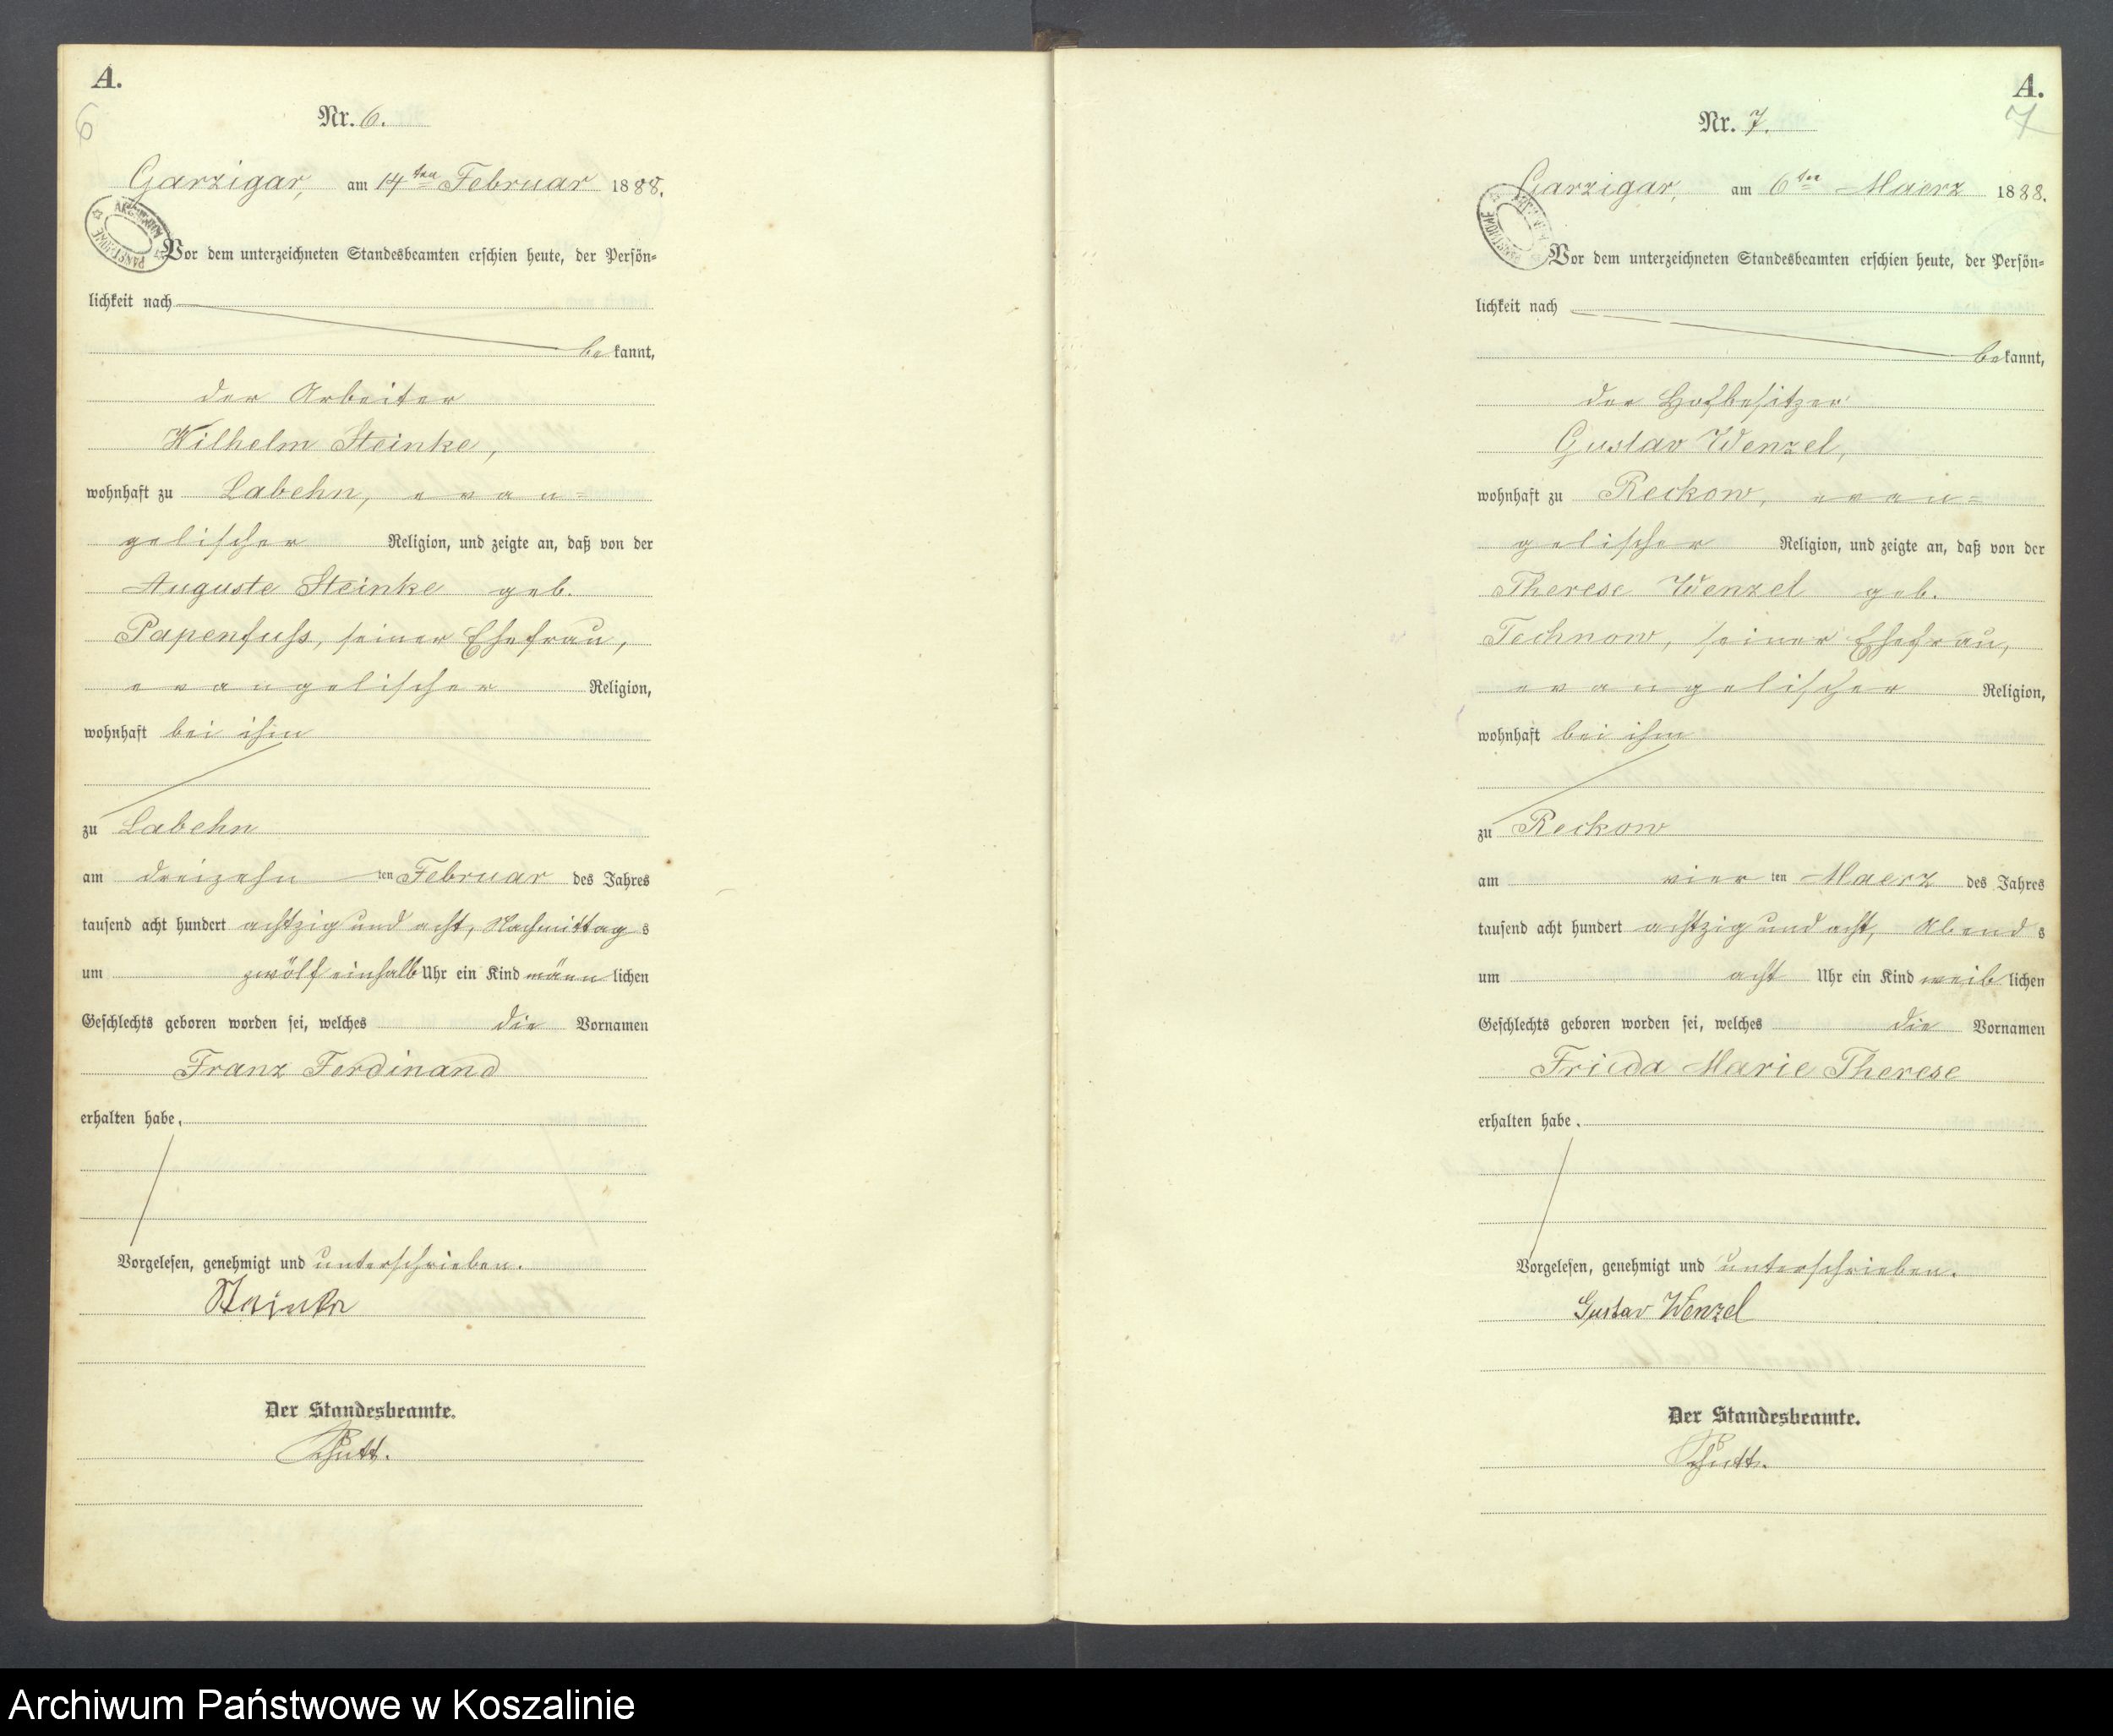 A.
6
Nr. 6.
Garzigar, am 14ten Februar 1888.
ARCHIWUM PAŃSTWOWE
Vor dem unterzeichneten Standesbeamten erschien heute, der Persön=
lichkeit nach
bekannt,
der Arbeiter
Wilhelm Steinke,
wohnhaft zu Labehn, evan=
gelischer Religion, und zeigte an, daß von der
Auguste Steinke geb.
Papenfuß, seiner Ehefrau,
evangelischer Religion,
wohnhaft bei ihm
zu Labehn
am dreizehn ten Februar des Jahres
tausend acht hundert achtzig und acht, Nachmittag s
um zwölf einhalb Uhr ein Kind männ lichen
Geschlechts geboren worden sei, welches die Vornamen
Franz Ferdinand
erhalten habe.
Vorgelesen, genehmigt und unterschrieben.
Steinke
Der Standesbeamte.
A.
7
Nr. 7.
Garzigar, am 6ten Maerz 1888.
ARCHIWUM PAŃSTWOWE
Vor dem unterzeichneten Standesbeamten erschien heute, der Persön=
lichkeit nach
bekannt,
der Hofbesitzer
Gustav Wenzel,
wohnhaft zu Reckow, evan=
gelischer Religion, und zeigte an, daß von der
Therese Wenzel geb.
Technow, seiner Ehefrau,
evangelischer Religion,
wohnhaft bei ihm
zu Reckow
am vier ten Maerz des Jahres
tausend acht hundert achtzig und acht, Abend s
um acht Uhr ein Kind weib lichen
Geschlechts geboren worden sei, welches die Vornamen
Frieda Marie Therese
erhalten habe.
Vorgelesen, genehmigt und unterschrieben.
Gustav Wenzel
Der Standesbeamte.
Archiwum Państwowe w Koszalinie